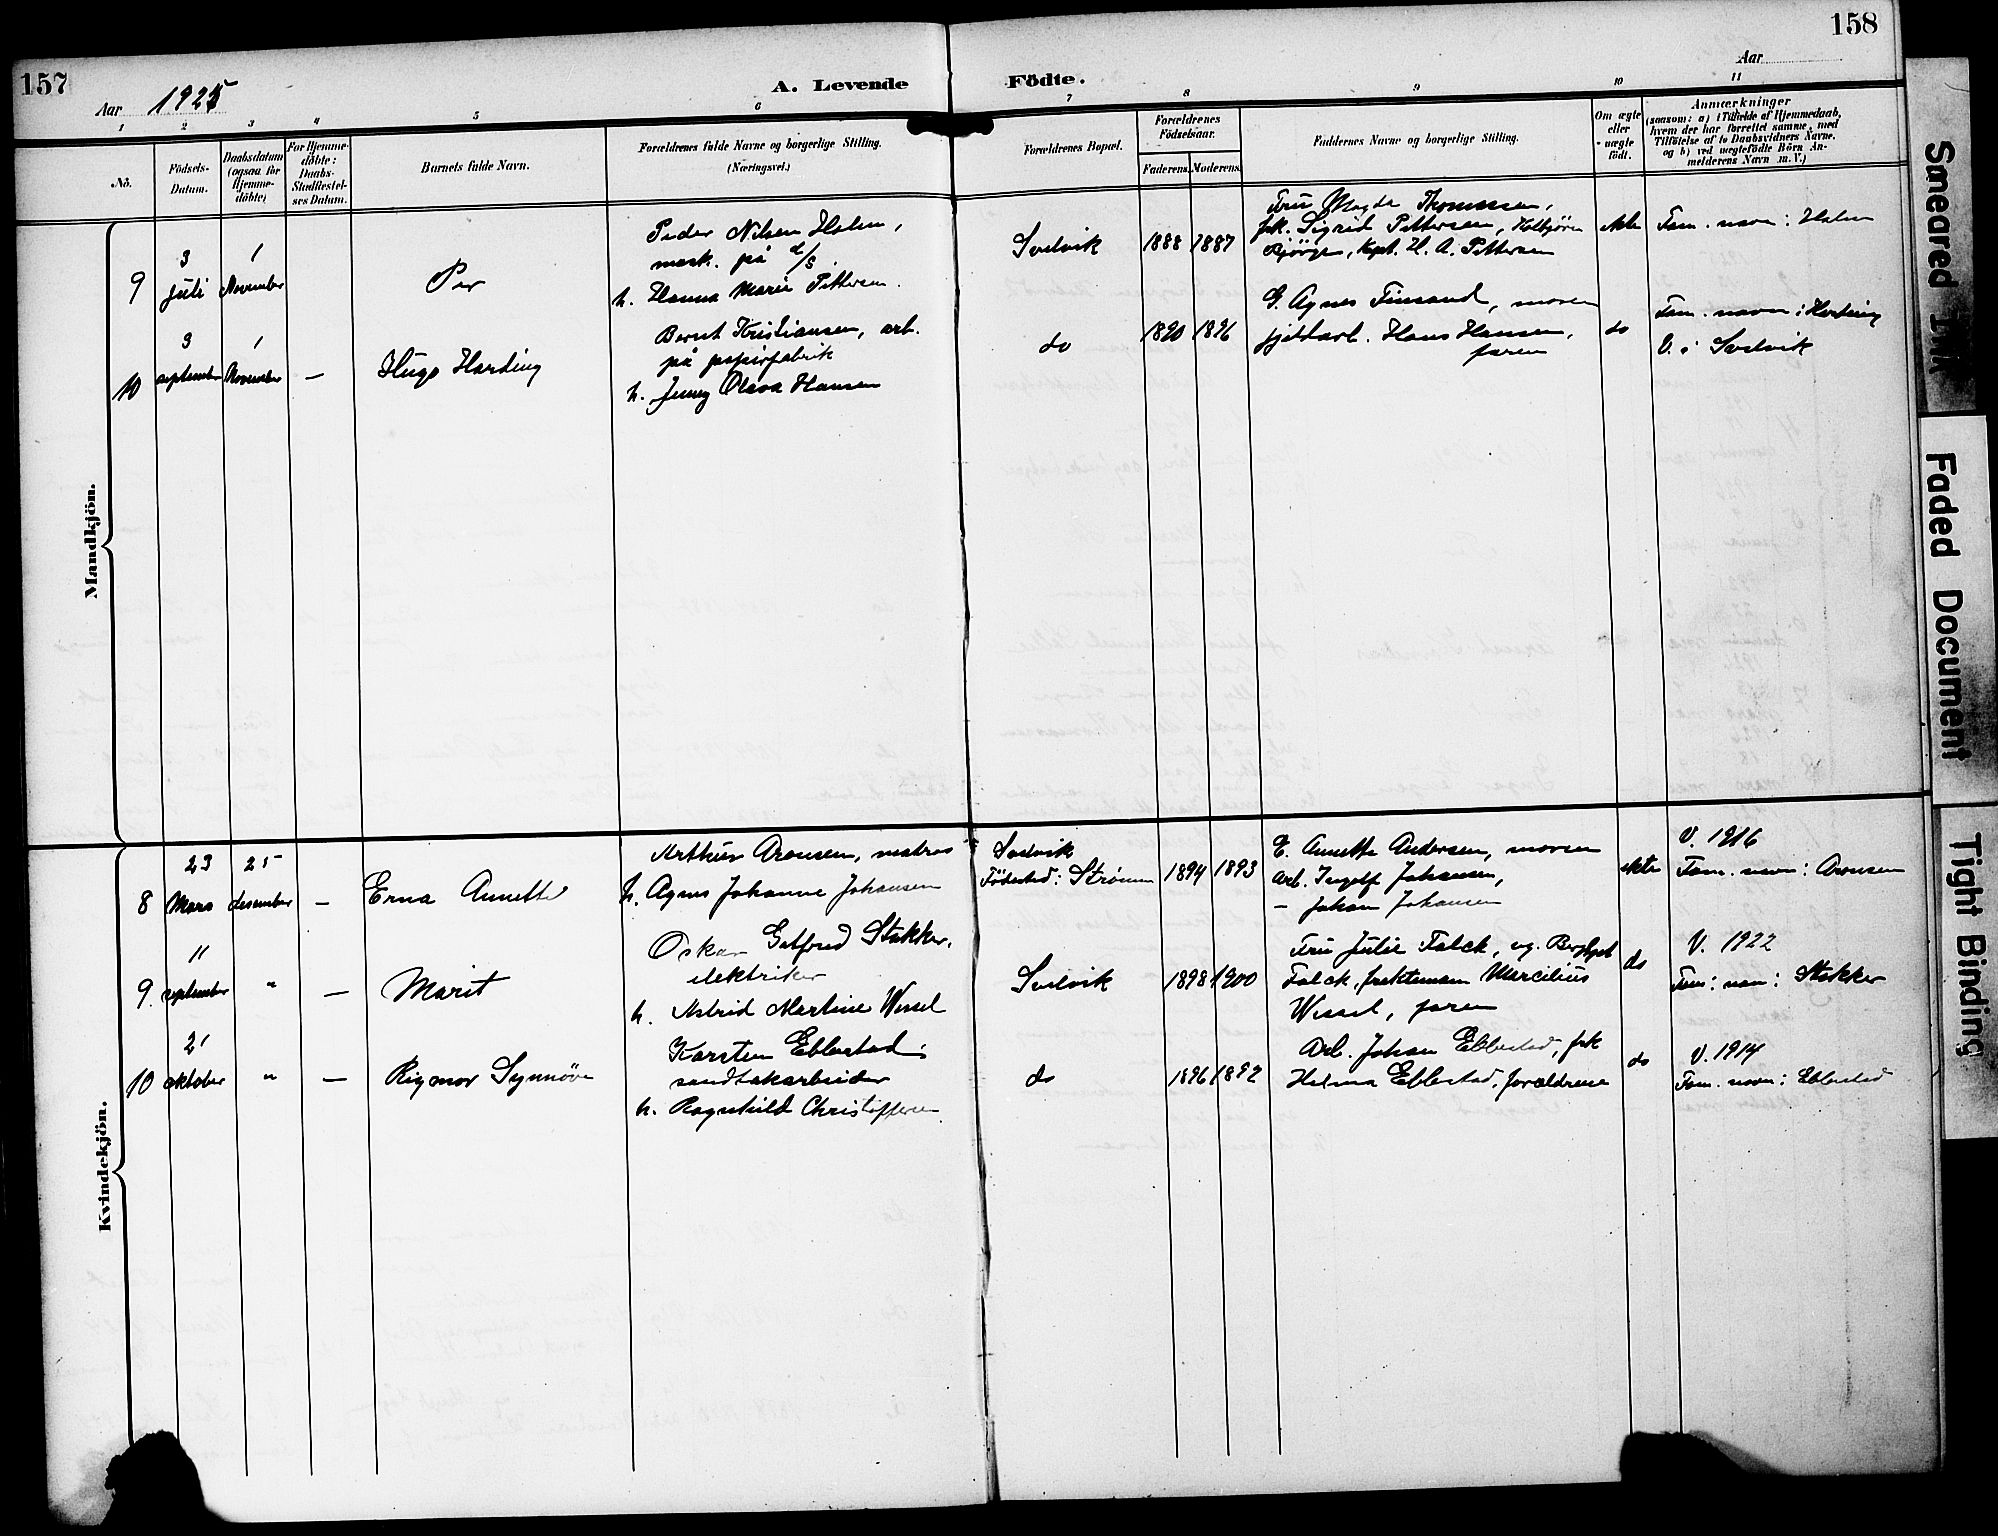 157
158
A. Levende
Födte.
Aar 1925
Aar
1 2 3 4 5 6 7 8 9 10 11
No.
Födsels-
Datum.
Daabsdatum
(ogsaa for
Hjemme-
döbte)
For Hjemme-
döbte:
Daabs-
Stadfæstel-
ses Datum.
Barnets fulde Navn.
Forældrenes fulde Navne og borgerlige Stilling.
(Næringsvei.)
Forældrenes Bopæl.
Forældrenes
Födselsaar.
Faderens.
Moderens.
Faddernes Navne og borgerlige Stilling.
Om ægte
eller
uægte
födt.
Anmærkninger
(saasom: a) i Tilfælde af Hjemmedaab,
hvem der har forrettet samme, med
Tilföielse af to Daabsvidners Navne.
og b) ved uægtefödte Börn An-
melderens Navn m. V.)
Mandkjön.
9
3
juli
1
November
Per
Peder Nilsen Holm,
mask. på d/s
h. Hanna Marie Pettersen.
Svelvik
1888
1887
Fru Magda Thomassen,
frk. Sigrid Pettersen, Kolbjörn
Bjørge, kapt. H. A. Pettersen
ekte
Fam. navn: Holm
10
3
september
1
November
—
Hugo Harding
Bernt Kristiansen, arb.
på papirfabrik
h. Jenny Oleva Hansen
do
1890
1896
G. Agnes Finsand, moren
Hans Hansen,
faren
do
Fam. navn: Harding
V. i Svelvik
Kvindekjön.
8
23
Mars
25
desember
—
Erna Annette
Arthur Aronsen, matros
h. Agnes Johanne Johansen
Svelvik
Födested: Strømm
1894
1893
E. Annette Andersen, moren
Arb. Ingolf Johansen,
— Johan Johansen
ekte
V. 1916
Fam. navn: Aronsen
9.
11
september
"
—
Marit
Oskar Gotfred Stokker,
elektriker
h. Astrid Martine Wessel
Svelvik
1898
1900
Fru Julie Falck, og
Falck, fraktemann Marcilius
Wessel, faren
do
V. 1922
Fam. navn: Stokker
10
21
oktober
"
—
Rigmor Synnöve
Karsten Ebbestad,
sandtakarbeider
h. Ragnhild Christoffersen
do
1896
1892
Arb. Johan Ebbestad, frk
Helma Ebbestad, forældrene
do
V. 1914
Fam. navn: Ebbestad
Smeared Ink
Faded Document
Tight Binding